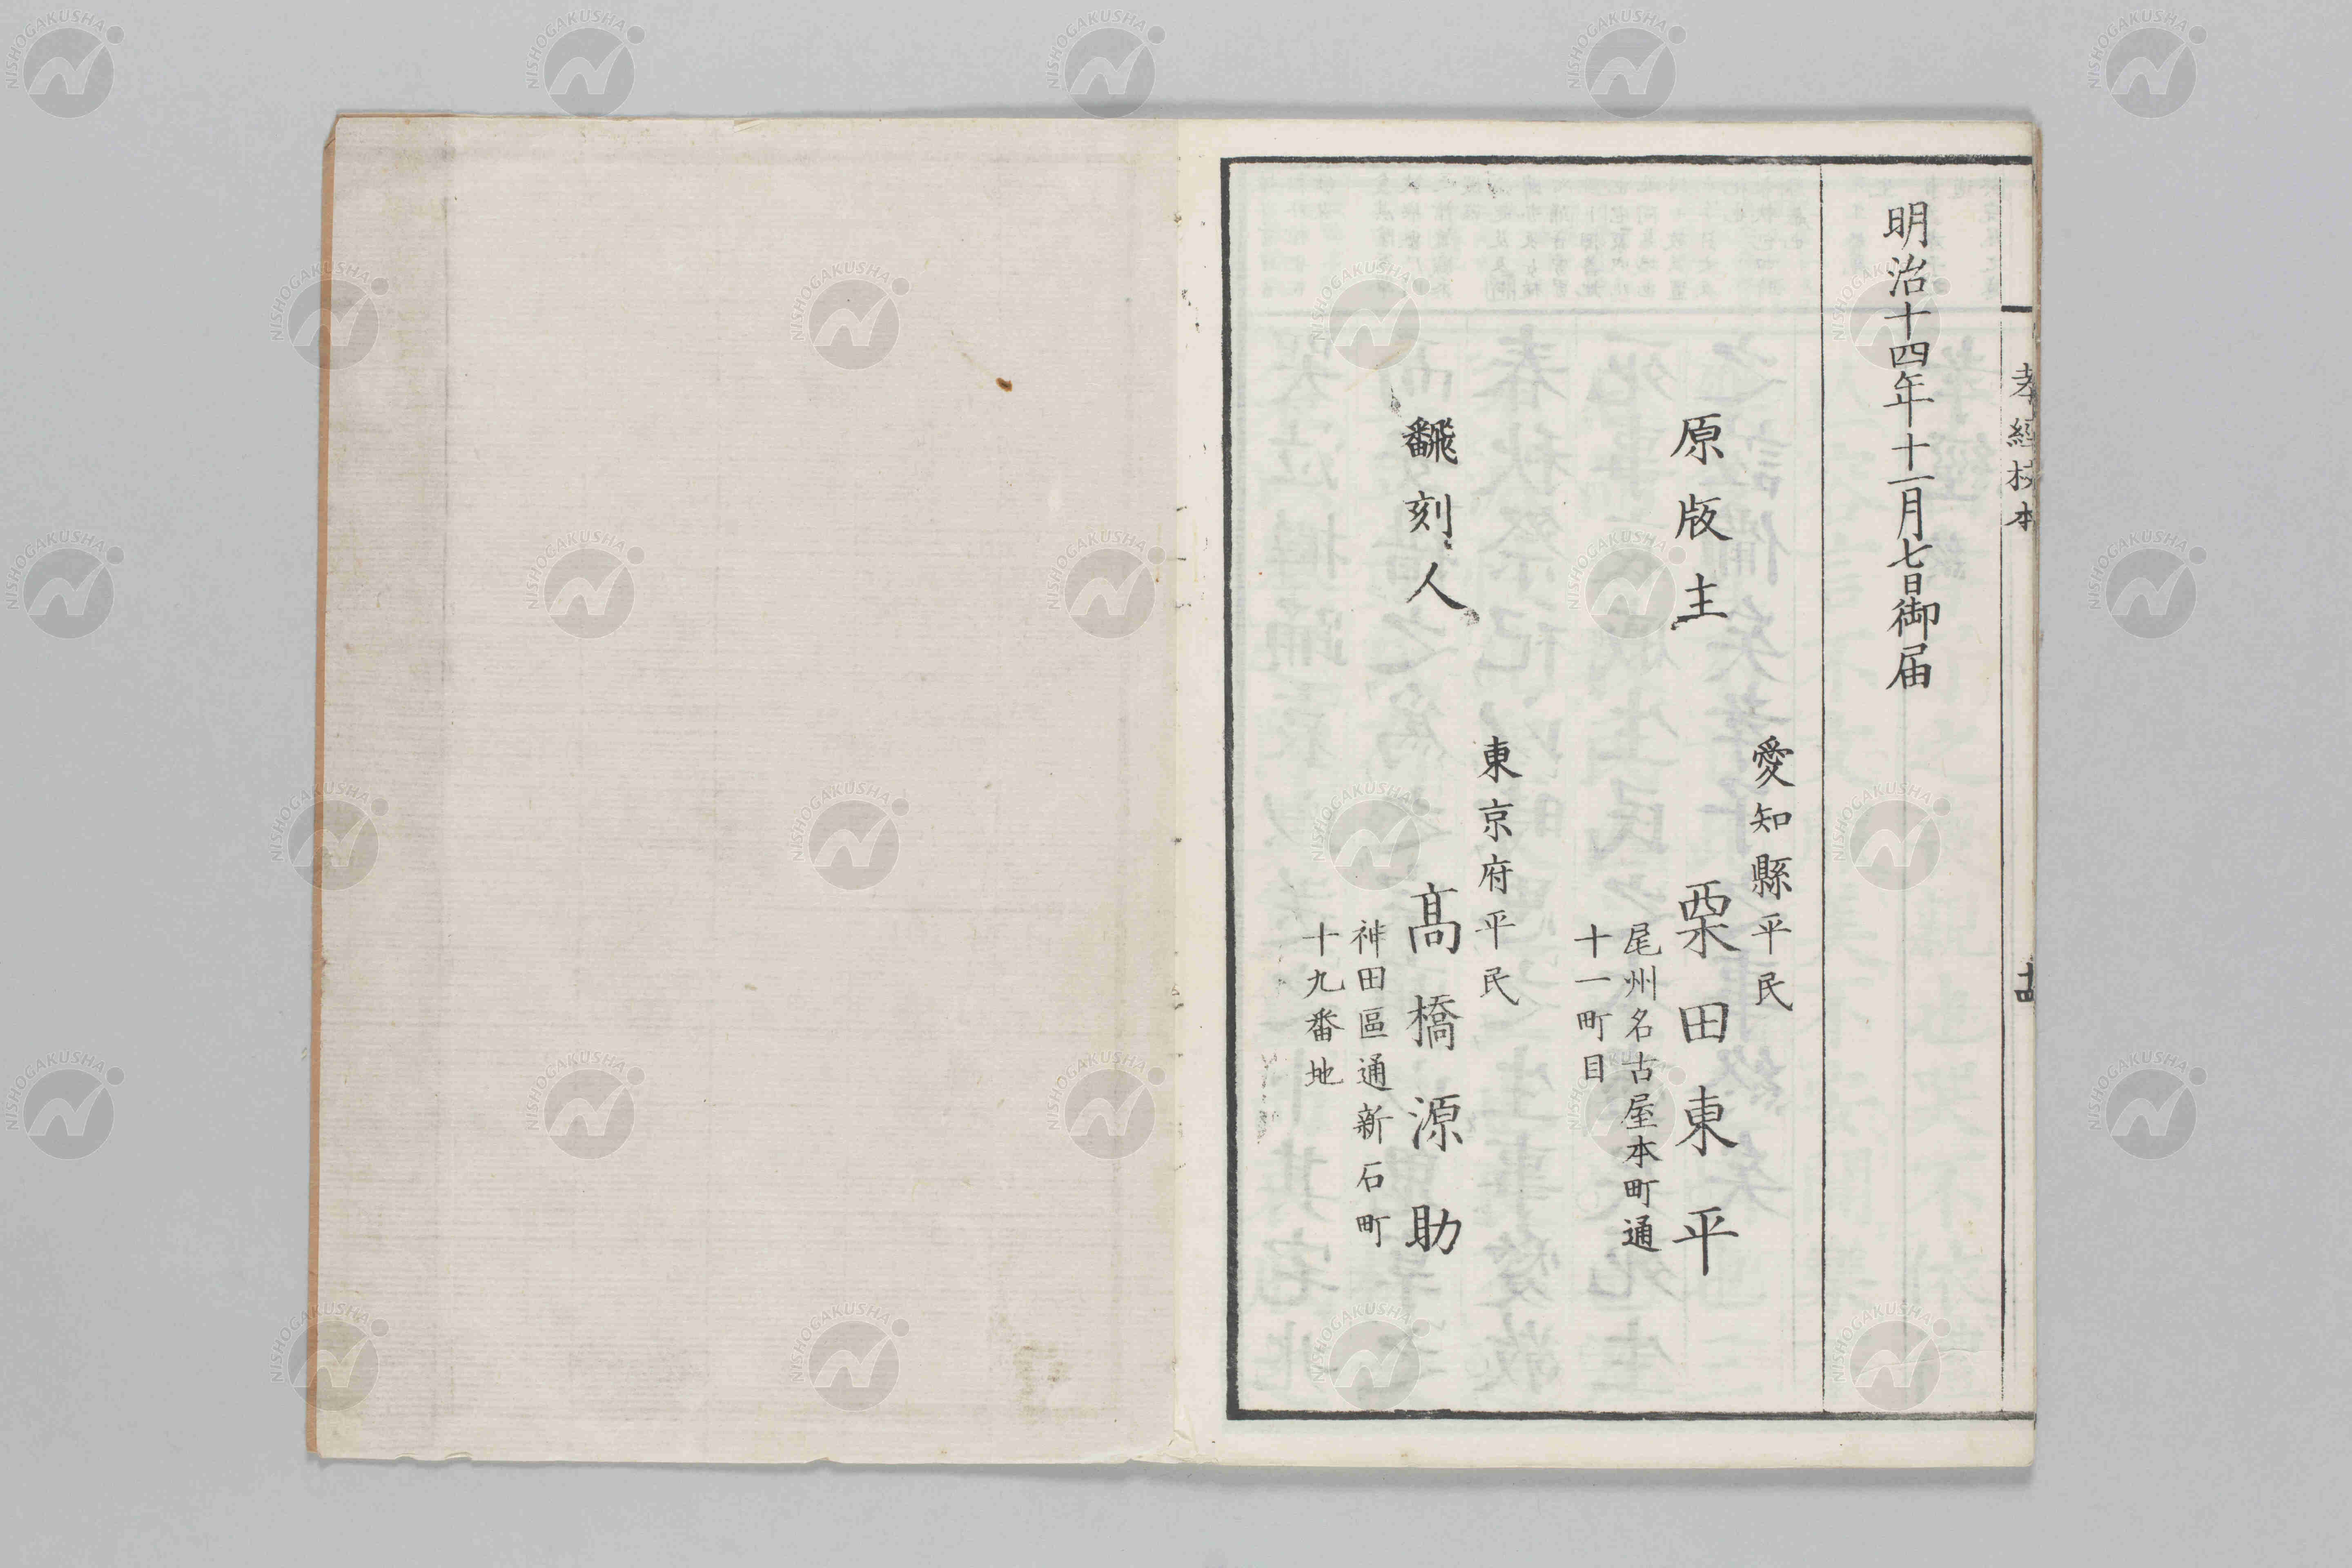 孝經校本
十四
明治十四年十一月七日御届
愛知縣平民
原版主 栗田東平
尾州名古屋本町通
十一町目
東京府平民
飜刻人 髙橋源助
神田區通新石町
十九番地
NISHOGAKUSHA